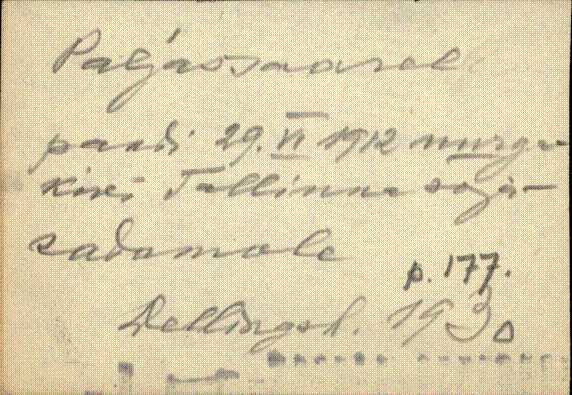 Paljassaarel
pandi 29. VI 1912 nurga-
kivi Tallinna sõja-
sadamale
p. 177.
Dellingsh. 1930